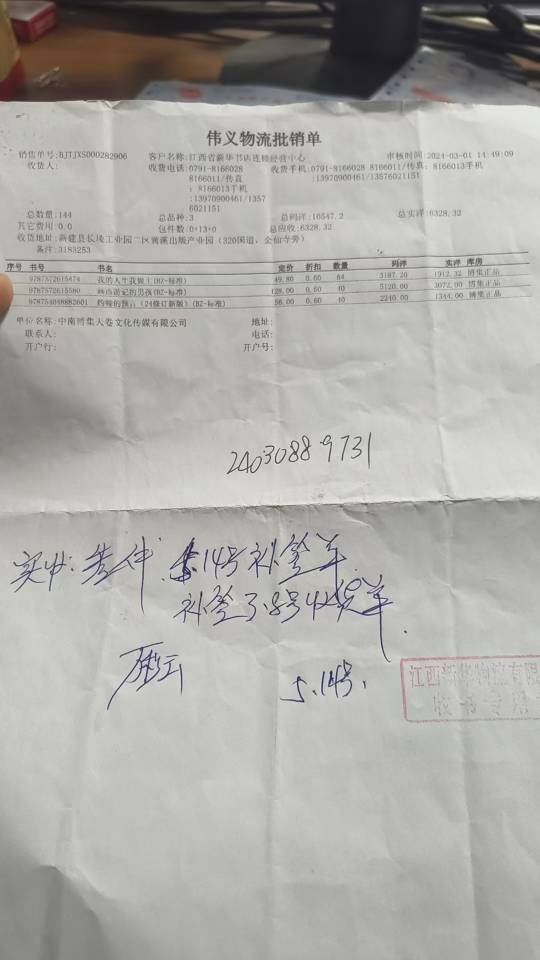 伟义物流批销单
销售单号:BJTJXS000282906 客户名称:江西省新华书店连锁经营中心 审核时间:2024-03-01 14:49:09
收货人: 收货电话:0791-8166028 收货手机:0791-8166028 8166011/传真:8166013手机
8166011/传真 :13970900461/13576021151
:8166013手机
:13970900461/1357
6021151
总数量:144 总品种:3 总码洋:10547.2 总实洋:6328.32
其它费用:0.0 包件数:0+13+0 总应收:6328.32
收货地址:新建县长堎工业园二区黄溪出版产业园(320国道,金仙寺旁)
备注:3183253
序号 书号 书名 定价 折扣 数量 码洋 实洋 库房
9787572615474 我的人生我做主(BZ-标准) 49.80 0.60 64 3187.20 1912.32 博集正品
9787572615580 (BZ-标准) 128.00 0.60 40 5120.00 3072.00 博集正品
约翰的预言(24修订新版)(BZ-标准) 56.00 0.60 40 2240.00 1344.00 博集正品
单位名称:中南博集天卷文化传媒有限公司 地址:
联系人: 电话:
开户行: 开户号:
2403088 9731
实收: 5.14号补签单
补签3.8号
5.14号.
江西新华物流有限
收书专用